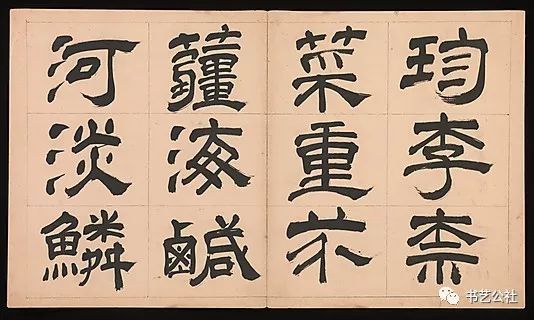 珍李柰
菜重芥
薑海鹹
河淡鱗
书艺公社